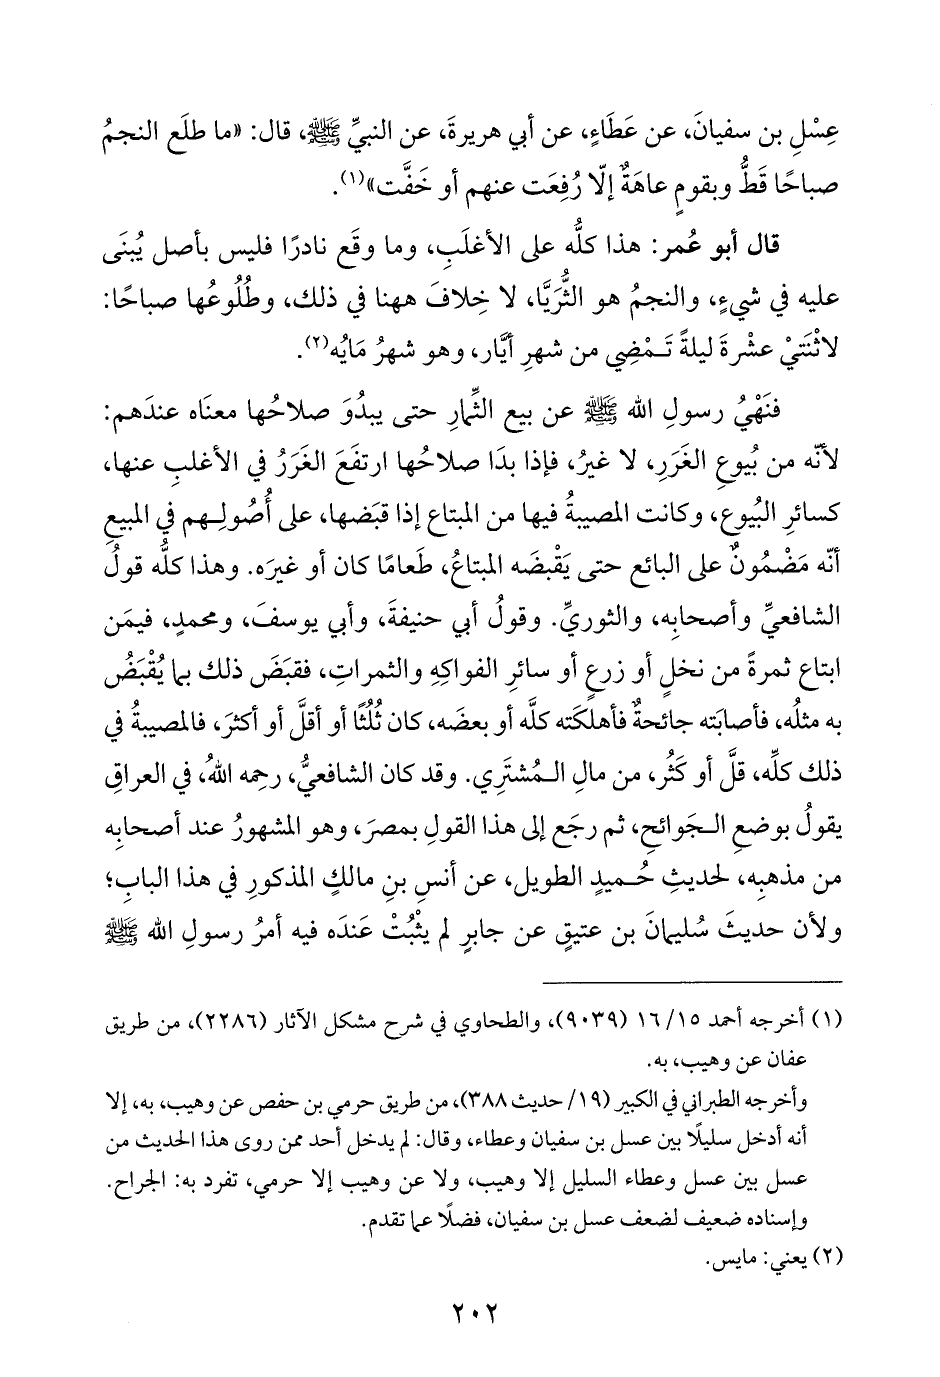 عِسْلِ بن سفيانَ، عن عَطَاءٍ، عن أبي هريرةَ، عن النبيِّ ﷺ، قال: «ما طلَع النجمُ
صباحًا قَطُّ وبقومٍ عاهَةٌ إلّا رُفِعَت عنهم أو خَفَّت»(١).
قال أبو عُمر: هذا كلُّه على الأغلَبِ، وما وقَع نادرًا فليس بأصل يُبنَى
عليه في شيءٍ، والنجمُ هو الثُّرَيَّا، لا خِلافَ ههنا في ذلك، وطُلُوعُها صباحًا:
لاثْنَتيْ عشْرةَ ليلةً تَـمْضِي من شهرِ أيَّار، وهو شهرُ مَايُه(٢).
فنَهْيُ رسولِ الله ﷺ عن بيع الثِّمارِ حتى يبدُوَ صلاحُها معنَاه عندَهم:
لأنّه من بُيوعِ الغَرَرِ، لا غيرُ، فإذا بدَا صلاحُها ارتفَعَ الغَرَرُ في الأغلبِ عنها،
كسائرِ البُيوع، وكانت المصيبةُ فيها من المبتاع إذا قبَضها، على أُصُولِـهم في المبيعِ
أنّه مَضْمُونٌ على البائع حتى يَقْبضَه المبتاعُ، طَعامًا كان أو غيرَه. وهذا كلُّه قولُ
الشافعيِّ وأصحابِه، والثوريِّ. وقولُ أبي حنيفةَ، وأبي يوسفَ، ومحمدٍ، فيمَن
ابتاع ثمرةً من نخلٍ أو زرعٍ أو سائرِ الفواكِهِ والثمراتِ، فقبَضَ ذلك بما يُقْبَضُ
به مثلُه، فأصابَته جائحةٌ فأهلكَته كلَّه أو بعضَه، كان ثُلُثًا أو أقلَّ أو أكثرَ، فالمصيبةُ في
ذلك كلِّه، قلَّ أو كَثُر، من مالِ الـمُشتَرِي. وقد كان الشافعيُّ، رحِمه اللهُ، في العراقِ
يقولُ بوضعِ الـجَوائحِ، ثم رجَع إلى هذا القولِ بمصرَ، وهو المشهورُ عند أصحابِه
من مذهبِه، لحديثِ حُـميدٍ الطويل، عن أنسِ بنِ مالكٍ المذكورِ في هذا البابِ؛
ولأن حديثَ سُليمانَ بن عتيقٍ عن جابرٍ لم يثْبُتْ عَندَه فيه أمرُ رسولِ الله ﷺ
(١) أخرجه أحمد ١٥/ ١٦ (٩٠٣٩)، والطحاوي في شرح مشكل الآثار (٢٢٨٦)، من طريق
عفان عن وهيب، به.
وأخرجه الطبراني في الكبير (١٩/ حديث ٣٨٨)، من طريق حرمي بن حفص عن وهيب، به، إلا
أنه أدخل سليلًا بين عسل بن سفيان وعطاء، وقال: لم يدخل أحد ممن روى هذا الحديث من
عسل بين عسل وعطاء السليل إلا وهيب، ولا عن وهيب إلا حرمي، تفرد به: الجراح.
وإسناده ضعيف لضعف عسل بن سفيان، فضلًا عما تقدم.
(٢) يعني: مايس.
٢٠٢